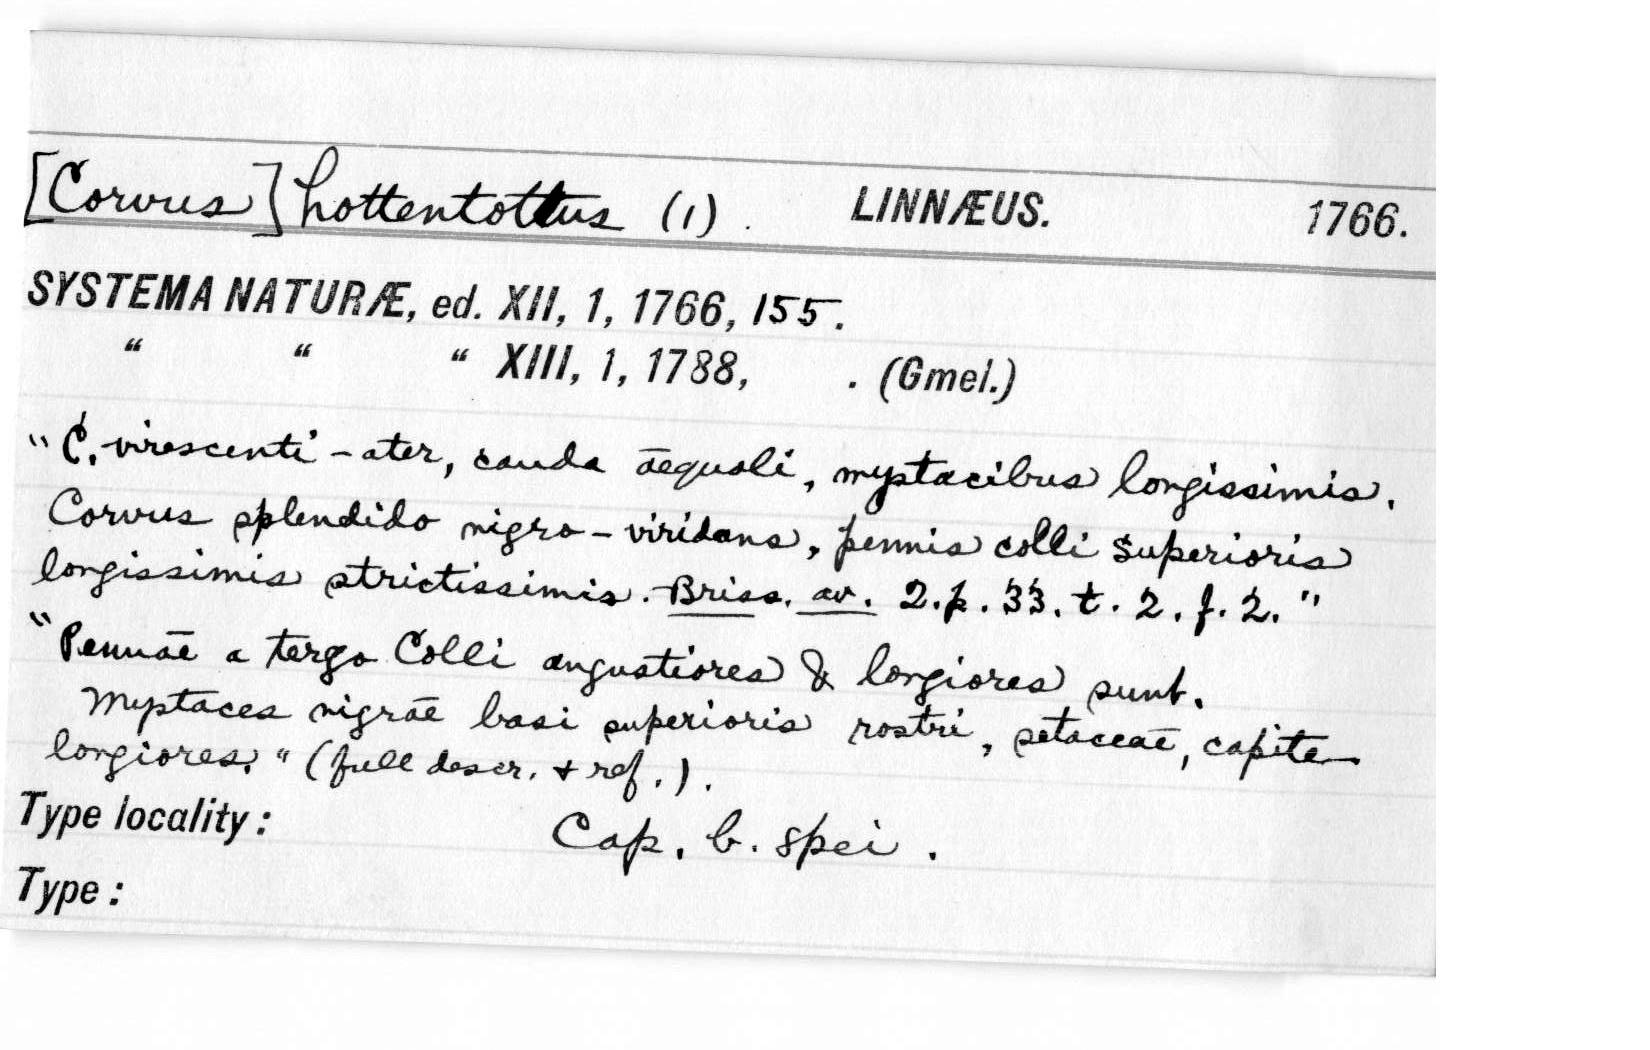 [Corvus] hottentottus (1). LINNÆUS. 1766.
SYSTEMA NATURÆ, ed. XII, 1, 1766, 155.
" " " XIII, 1, 1788, . (Gmel.)
"C. virescenti-ater, cauda aequali, mystacibus longissimis.
Corvus splendido nigro-viridans, pennis colli superioris
longissimis strictissimis. Briss. av. 2. p. 33. t. 2. f. 2."
"Pennae a tergo Colli angustiores & longiores sunt.
Mystaces nigrae basi superioris rostri, setaceae, capite
longiores." (full descr. + ref.).
Type locality: Cap. b. spei.
Type: